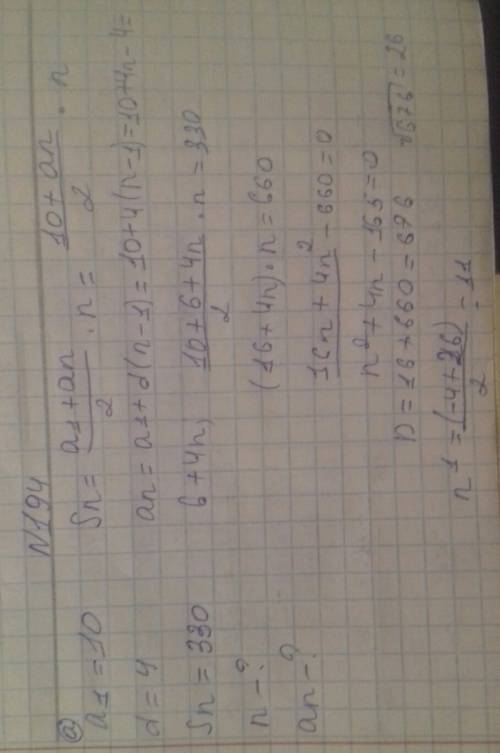 N194
а) a1 = 10   Sn = (a1 + an)/2 · n = (10 + an)/2 · n
d = 4   an = a1 + d(n-1) = 10 + 4(n-1) = 10 + 4n - 4 =
Sn = 330   6 + 4n,   (10 + 6 + 4n)/2 · n = 330
n - ?   (16 + 4n) · n = 660
an - ?   16n + 4n² - 660 = 0
n² + 4n - 165 = 0
D = 16 + 660 = 676   √676 = 26
n1 = (-4 + 26)/2 = 11